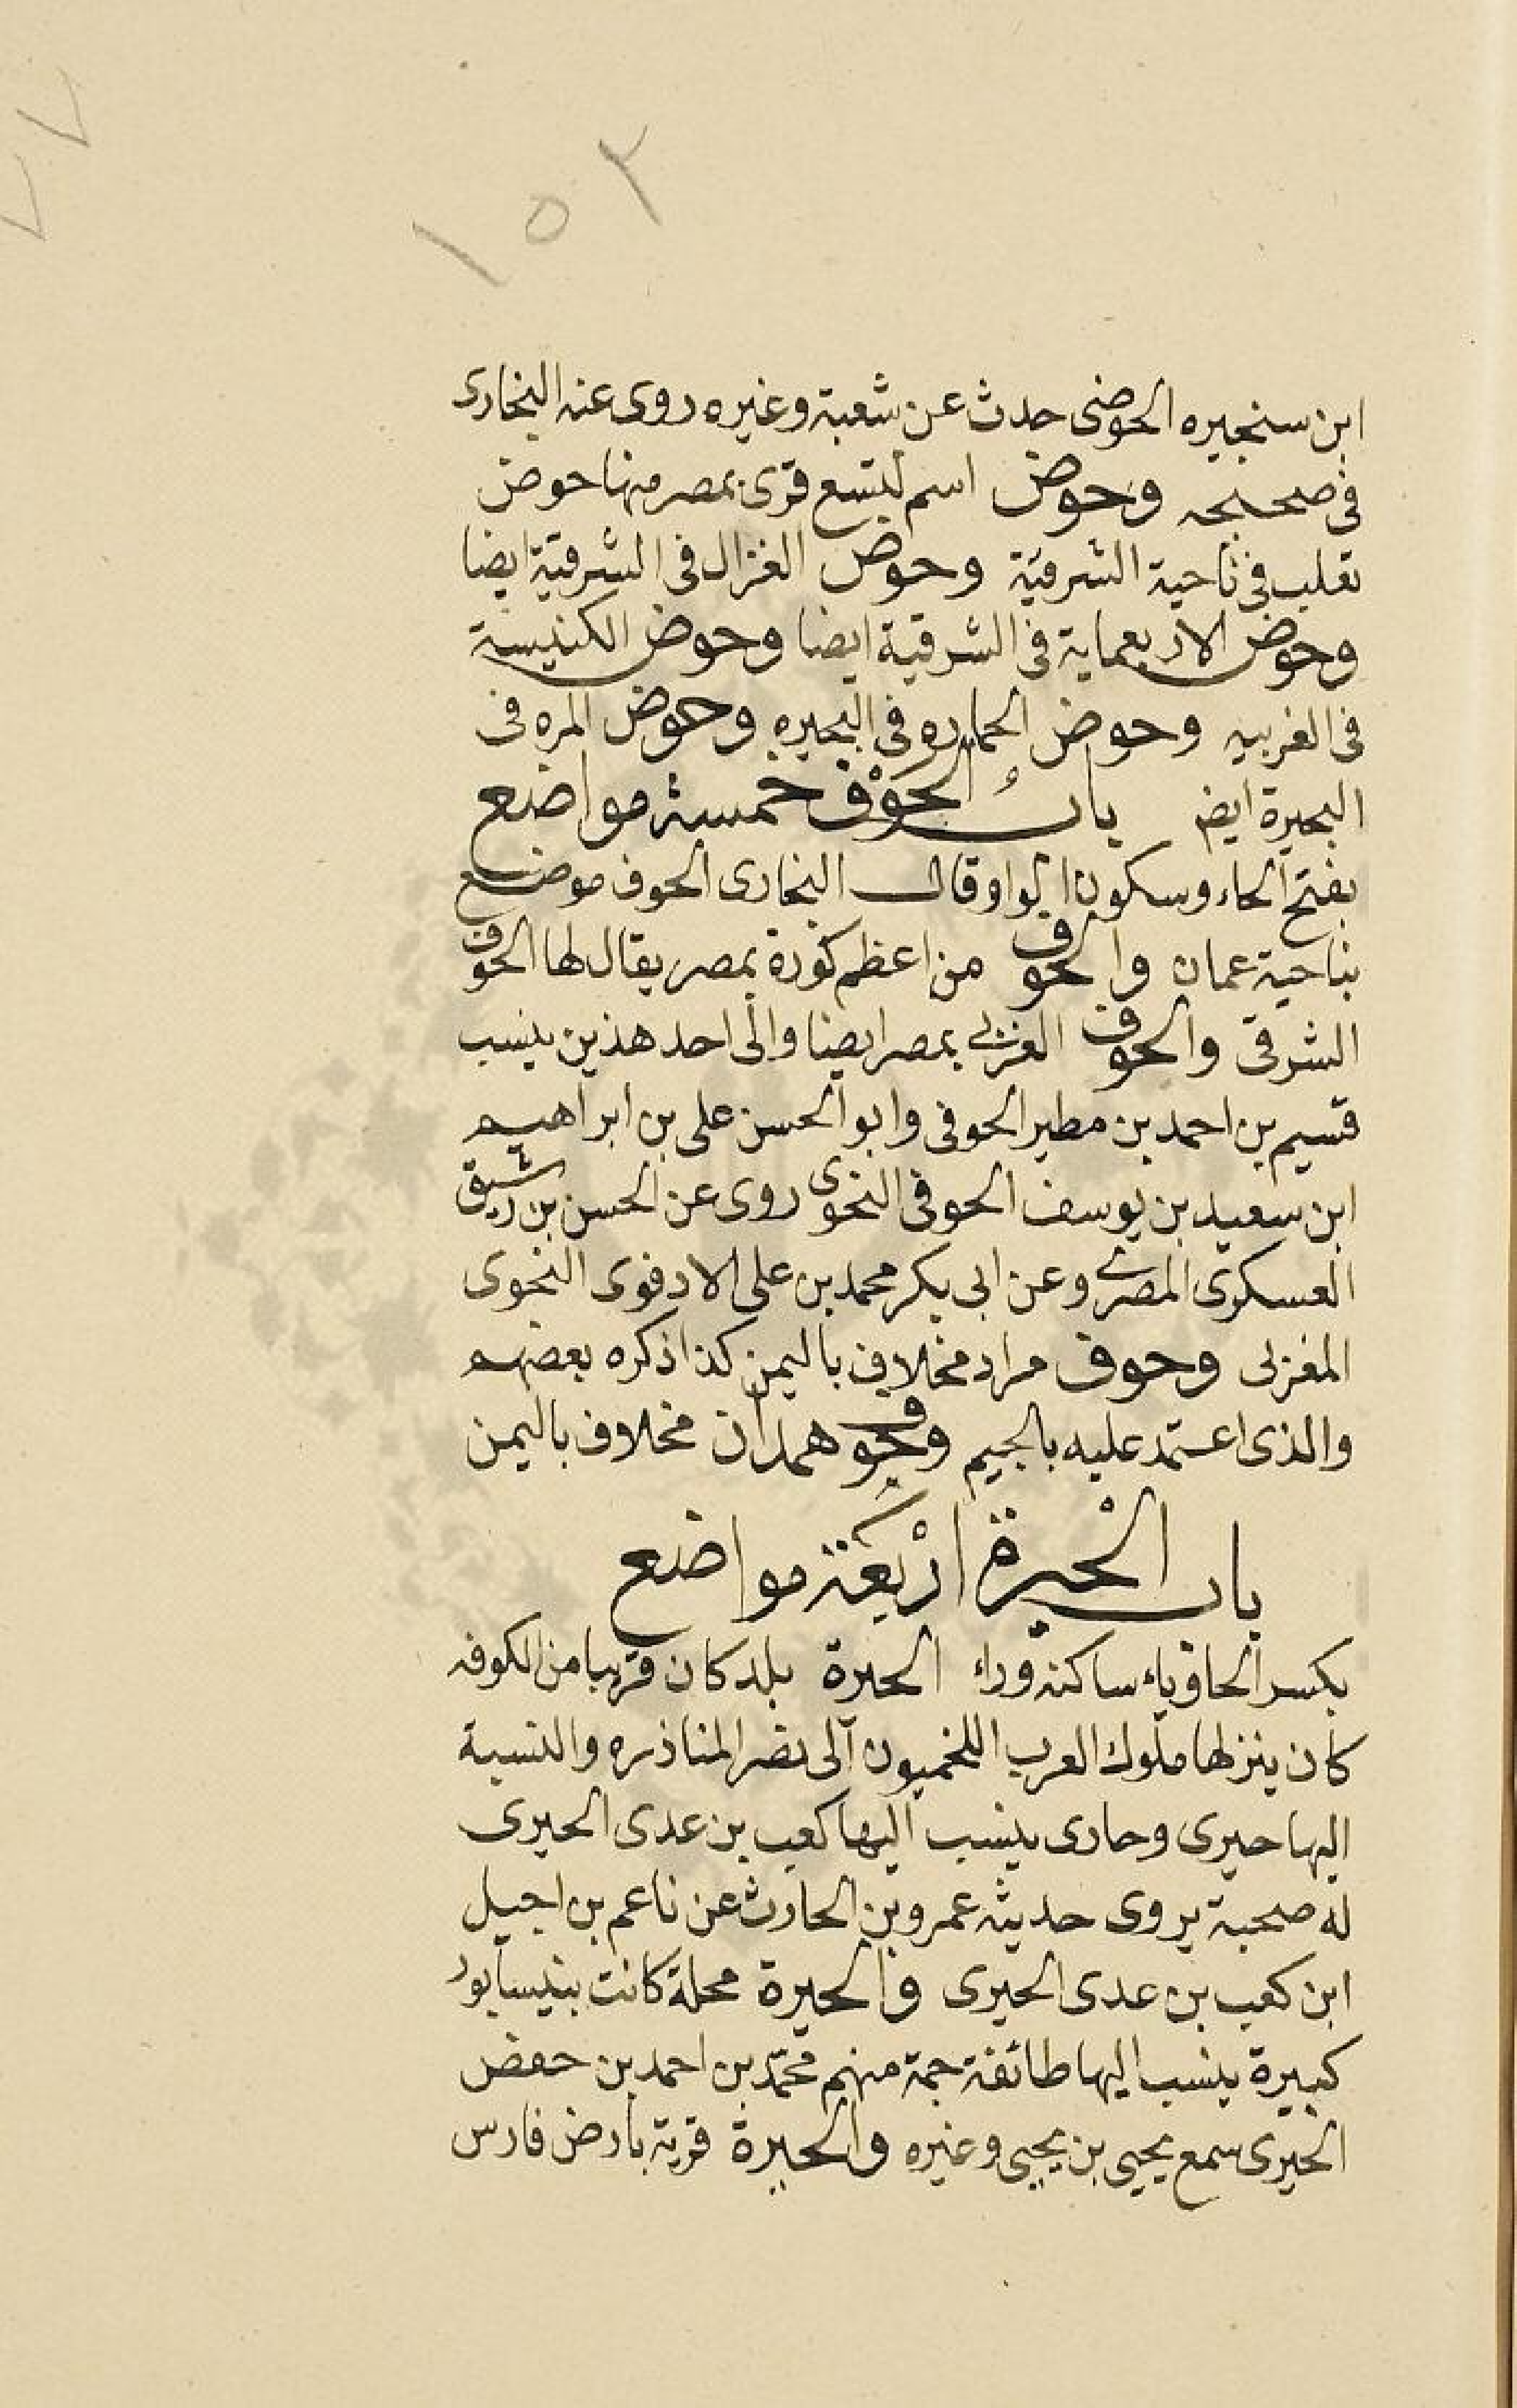 ١٥٢
٧٧
ابن سنجيره الحوضى حدث عن شعبة وغيره روى عنه البخارى
فى صحيحه وحوض اسم لتسع قرى بمصر منها حوض
تغلب فى ناحية الشرقية وحوض الغزال فى الشرقية ايضا
وحوض الاربعماية فى الشرقية ايضا وحوض الكنيسة
فى الغربيه وحوض الحماره فى البحيره وحوض المره فى
البحيرة ايضا باب الحَوْف خمسة مواضع
بفتح الحاء وسكون الواو قال البخارى الحوف موضع
بناحية عمان والحوف من اعظم كورة بمصر يقال لها الحوف
الشرقى والحوف الغربى بمصر ايضا والى احد هذين ينسب
قسيم بن احمد بن مطير الحوفى وابو الحسن على بن ابراهيم
ابن سعيد بن يوسف الحوفى النحوى روى عن الحسن بن رشيق
العسكرى المصرى وعن ابى بكر محمد بن على الادفوى النحوى
المغربى وحوف مراد مخلاف باليمن كذا ذكره بعضهم
والذى اعتمد عليه بالجيم وحوف همدان مخلاف باليمن
باب الحْيرة ارْبَعَة مواضع
بكسر الحا وياء ساكنه وراء الحيرة بلد كان قريبا من الكوفه
كان ينزلها ملوك العرب اللخميون آلى نصر المناذره والنسبة
اليها حيرى وحارى ينسب اليها كعب بن عدى الحيرى
له صحبة يروى حديثه عمرو بن الحارث عن ناعم بن اجيل
ابن كعب بن عدى الحيرى والحيرة محلة كانت بنيسابور
كبيرة ينسب اليها طائفة جمة منهم محمّد بن احمد بن حفص
الحيرى سمع يحيى بن يحيى وغيره والحيرة قرية بارض فارس